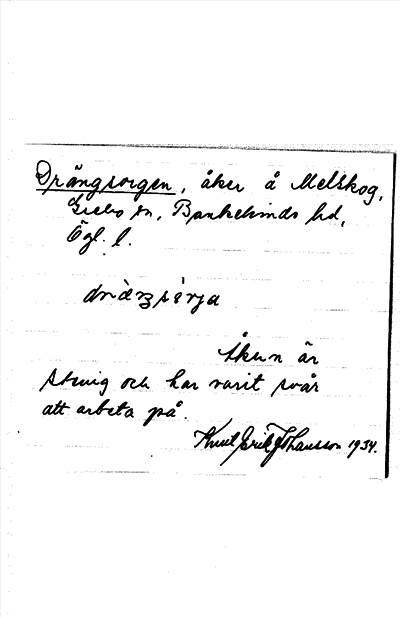 Drängsorgen, åker å Melskog,
Grebo sn, Bankekinds hd,
Ögl. l.
åkern är
stenig och har varit svår
att arbeta på.
Knut Erik Johansson 1934.